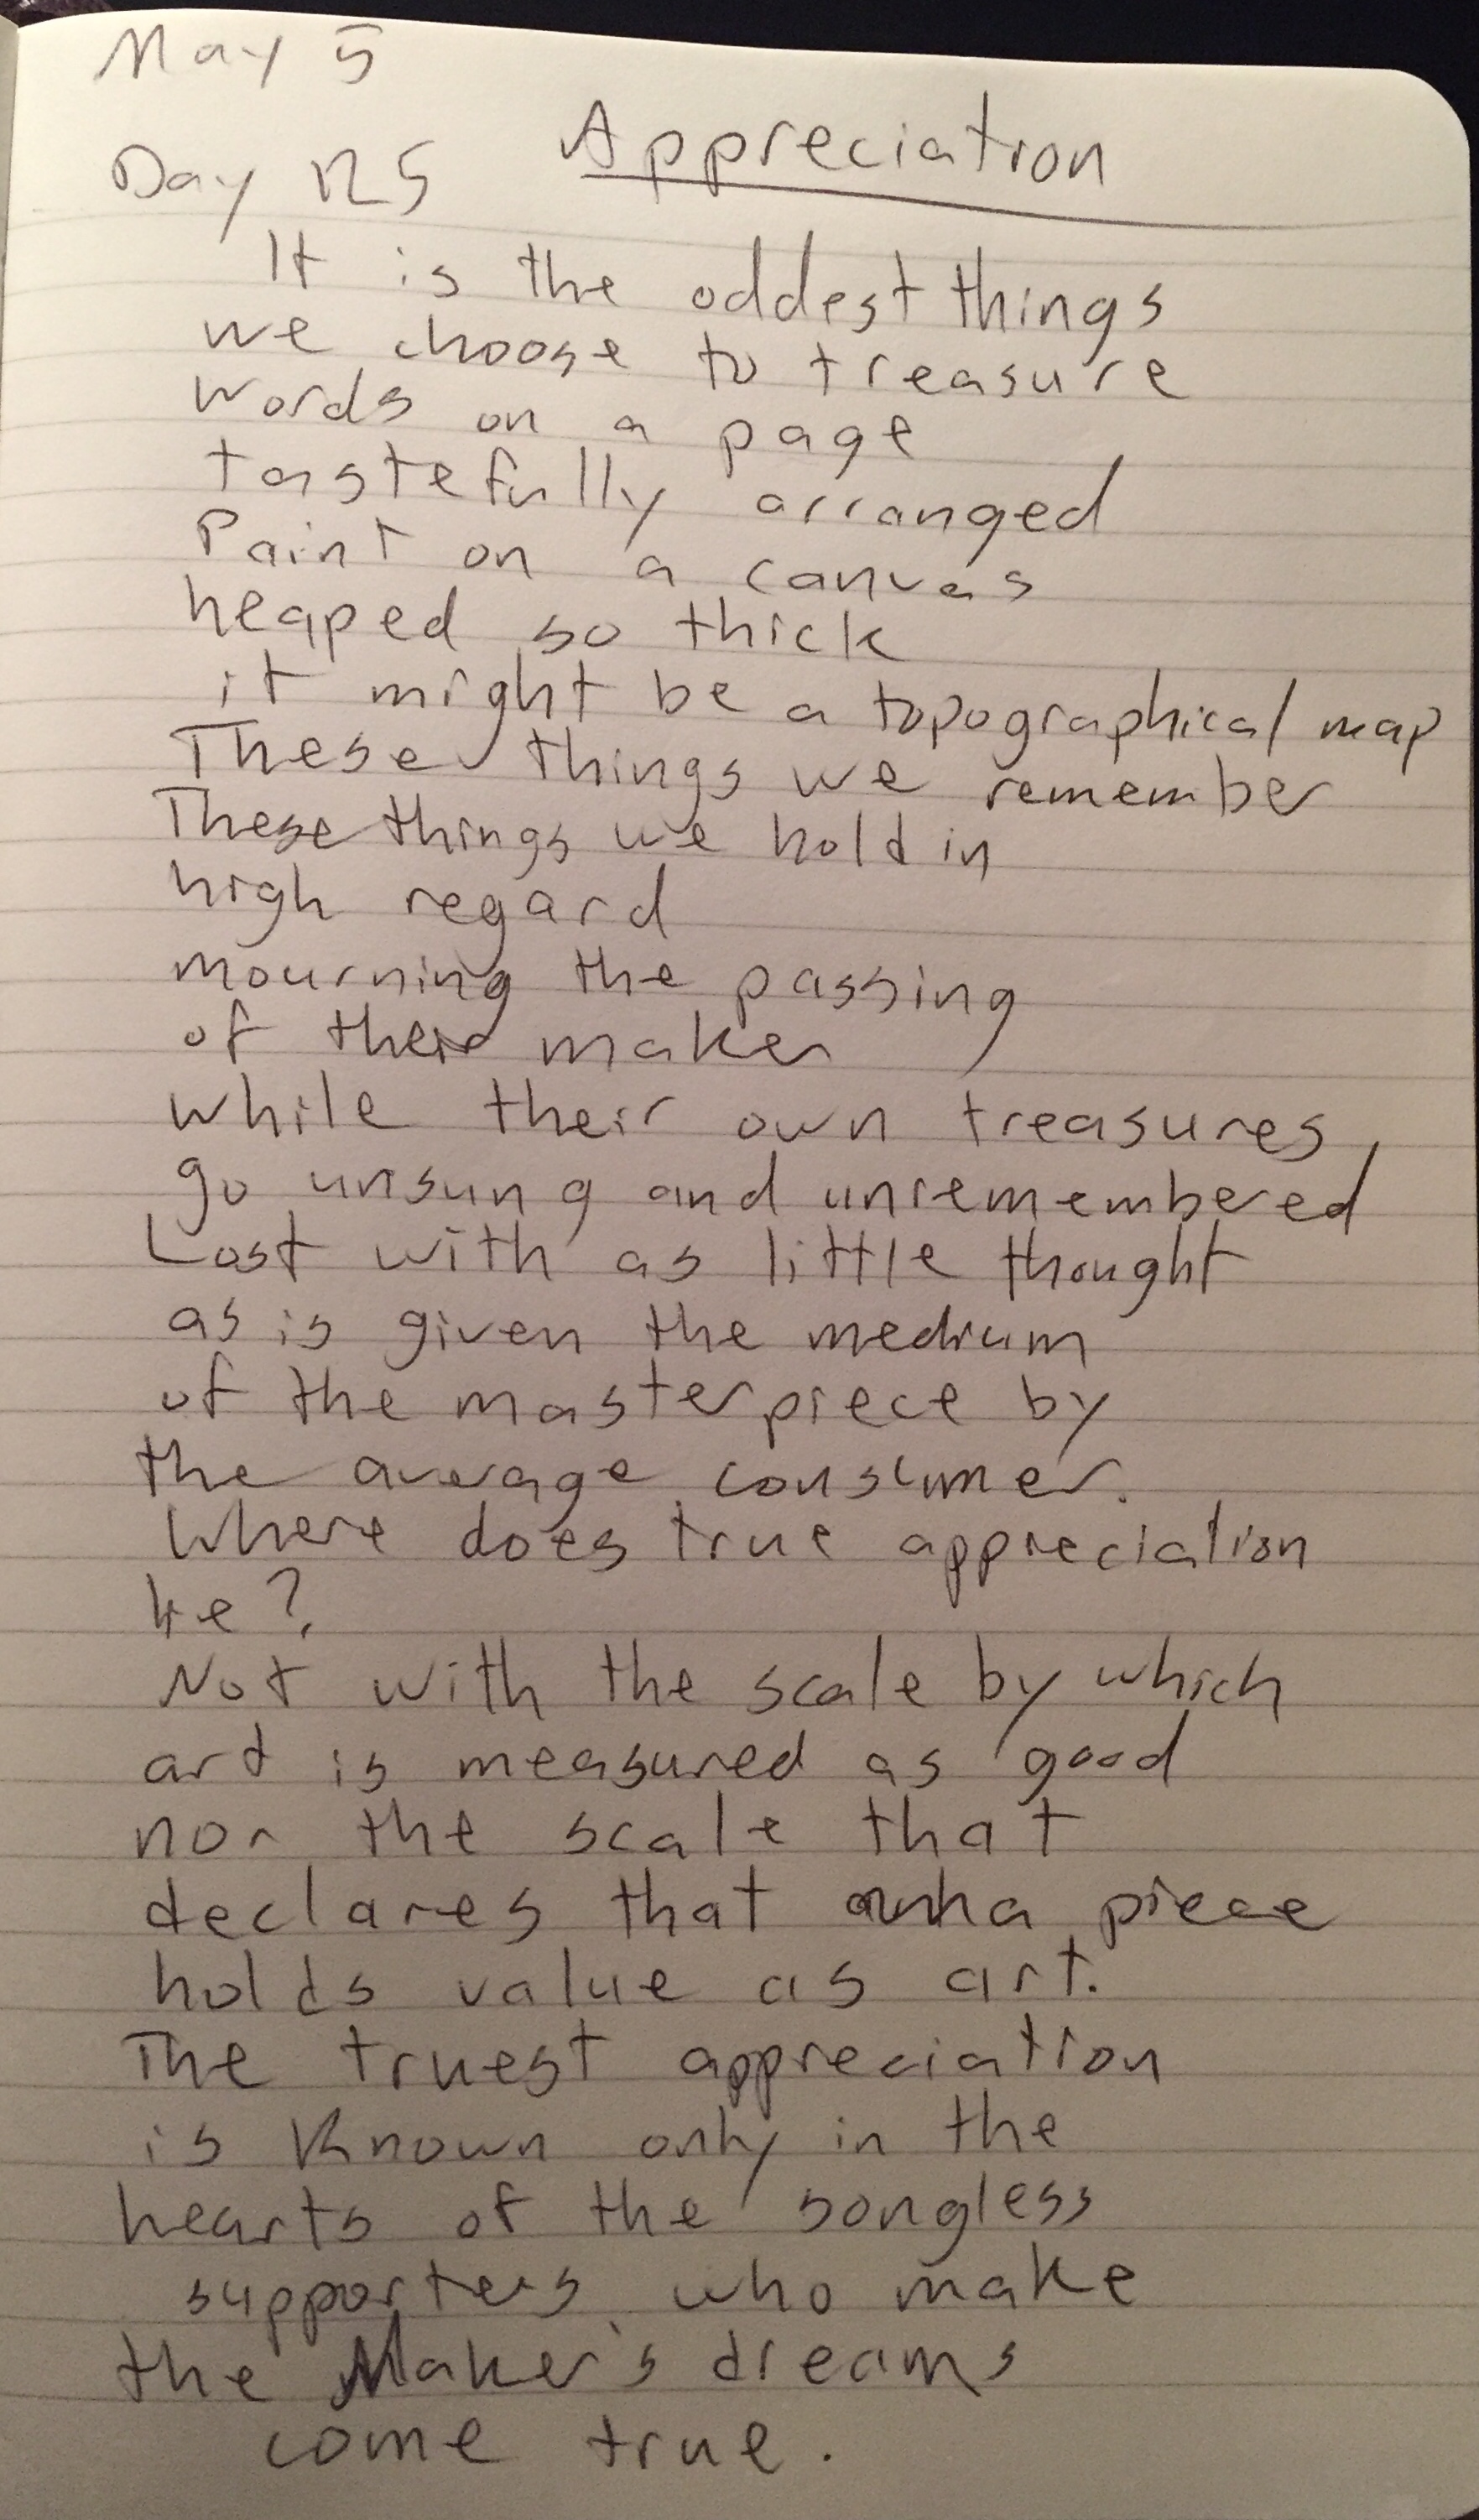 May 5
Appreciation
Day 125
It is the oddest things
we choose to treasure
words on a page
tastefully arranged
Paint on a canvas
heaped so thick
it might be a topographical map
These things we remember
These things we hold in
high regard
mourning the passing
of their maker
while their own treasures
go unsung and unremembered
Lost with as little thought
as is given the medium
of the masterpiece by
the average consumer.
Where does true appreciation
lie?
Not with the scale by which
art is measured as good
nor the scale that
declares that a piece
holds value as art.
The truest appreciation
is known only in the
hearts of the songless
supporters who make
the Maker's dreams
come true.